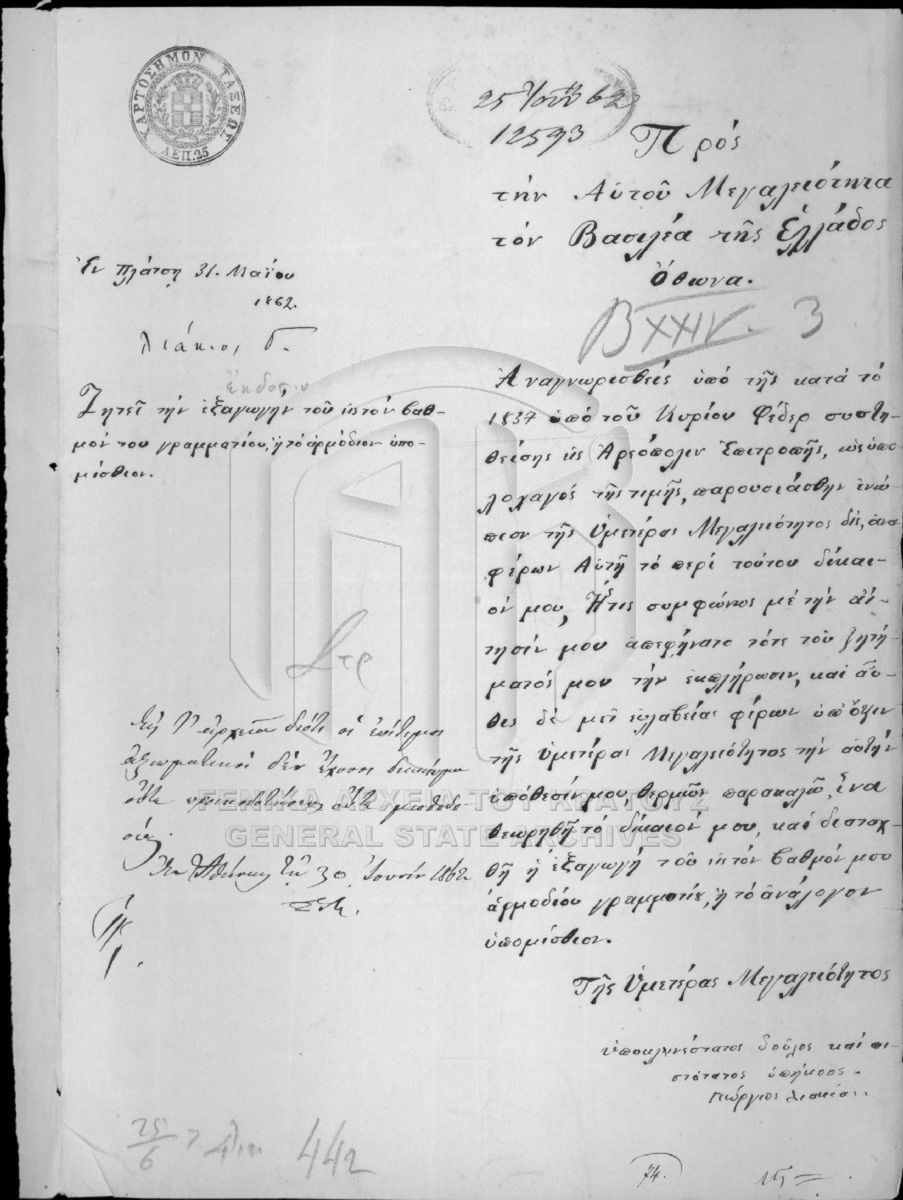 ΧΑΡΤΟΣΗΜΟΝ ΤΑΞΕΩΣ
ΛΕΠ.25
25 62
12593
Πρός
τήν Αὑτοῦ Μεγαλειότητα
τόν Βασιλέα τῆς Ἑλλάδος
Ὄθωνα.
Ἐν Πλάτσῃ 31. Μαΐου
1862.
B XXIV. 3
Λιάκιος Γ.
Ἔκδοσιν
Ζητεῖ τήν ἐξαγωγήν τοῦ εἰς τόν βαθ-
μόν του γραμματίου, ἤ τό ἁρμόδιον ὑπο-
μίσθιον.
Ἀναγνωρισθείς ὑπό τῆς κατά τό
1834 ὑπό τοῦ Κυρίου Φέδερ συστη-
θείσης εἰς Ἀρεόπολιν Ἐπιτροπῆς, ὡς ὑπο-
λοχαγός τῆς τιμῆς, παρουσιάσθην ἐνώ-
πιον τῆς Ὑμετέρας Μεγαλειότητος δίς, ἀνα-
φέρων Αὐτῇ τό περί τούτου δίκαι-
όν μου, Ἥτις συμφώνως μέ τήν αἴ-
τησίν μου ἀπεφήνατο τότε τοῦ ζητή-
ματός μου τήν ἐκπλήρωσιν, καί αὖ-
θις δέ μετ' εὐλαβείας φέρων ὑπ' ὄψιν
τῆς Ὑμετέρας Μεγαλειότητος τήν αὐτήν
ὑπόθεσίν μου, θερμῶς παρακαλῶ, ἵνα
θεωρηθῇ τό δίκαιόν μου, καί διαταχ-
θῇ ἡ ἐξαγωγή τοῦ εἰς τόν βαθμόν μου
ἁρμοδίου γραμματίου, ἤ τό ἀνάλογον
ὑπομίσθιον.
Τῆς Ὑμετέρας Μεγαλειότητος
ὑποκλινέστατος δοῦλος καί πι-
στότατος ὑπήκοος.
Γεώργιος Λιάκιος.
Στρ
διότι οἱ ἐπίτιμοι
ἀξιωματικοί δέν ἔχουσι δικαίωμα
οὔτε προικοδοτήσεως οὔτε μισθοδο-
σίας.
Ἐν Ἀθήναις τῇ 30 Ἰουνίου 1862
ΓΕΝΙΚΑ ΑΡΧΕΙΑ ΤΟΥ ΚΡΑΤΟΥΣ
GENERAL STATE ARCHIVES
25/6 442
74